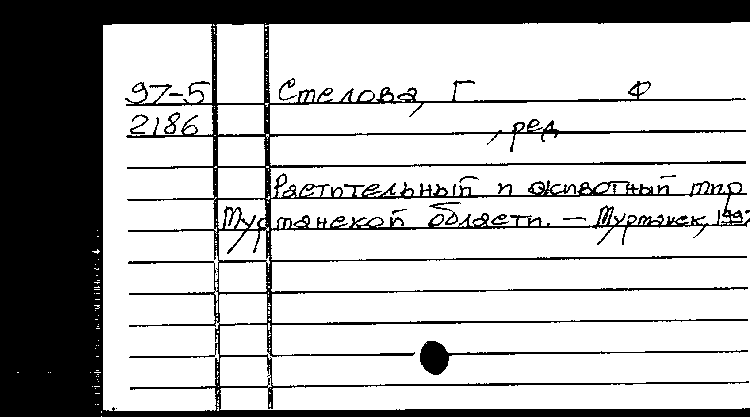 97-5 Стелова, Г Ф
2186 , ред
Растительный и животный мир
Мурманской области. — Мурманск, 1997